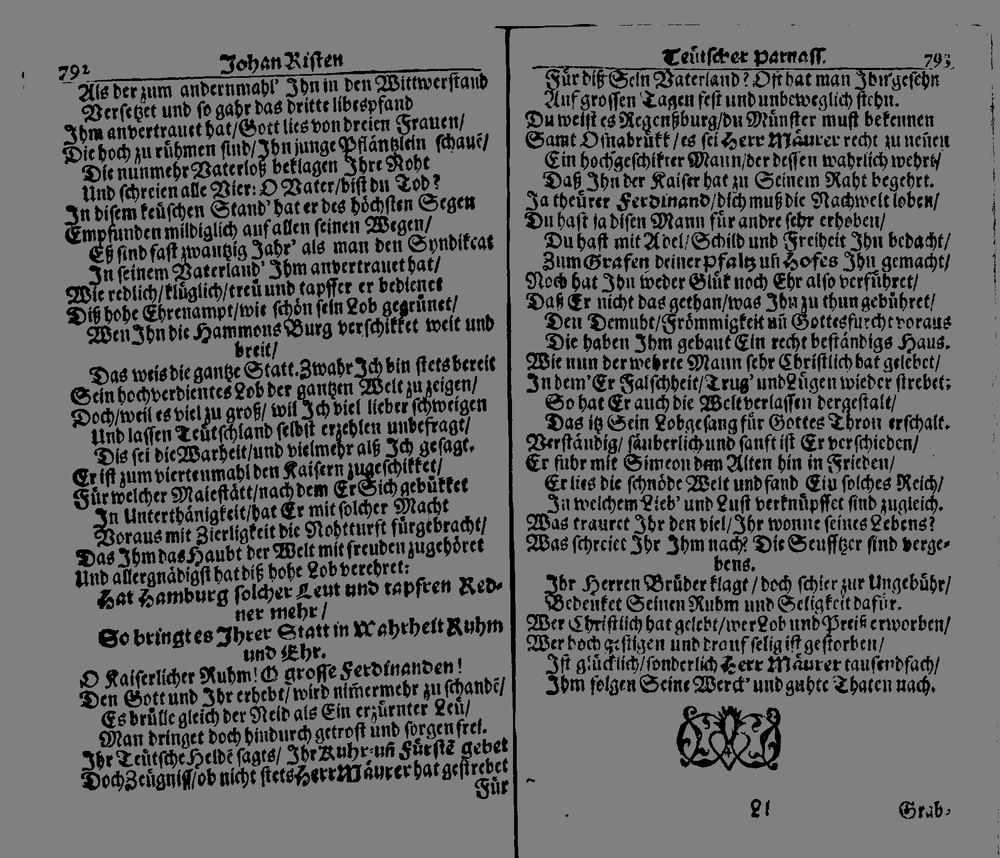 792 Johan Risten
Als der zum andernmahl' Ihn in den Wittwerstand
Versetzet und so gahr das dritte libespfand
Ihm anvertrauet hat/Gott lies von dreien Frauen/
Die hoch zu rühmen sind/Ihn junge Pfläntzlein schauẽ/
Die nunmehr Vaterloß beklagen Ihre Noht
Und schreien alle Vier: O Vater/bist du Tod?
In disem keüschen Stand' hat er des höchsten Segen
Empfunden mildiglich auf allen seinen Wegen/
Eß sind fast zwantzig Jahr' als man den Syndikcat
In seinem Vaterland' Ihm anvertrauet hat/
Wie redlich/klüglich/treü und tapffer er bedienet
Diß hohe Ehrenampt/wie schön sein Lob gegrünet/
Wen Ihn die Hammons Burg verschikket weit und
breit/
Das weis die gantze Statt. Zwahr Ich bin stets bereit
Sein hochverdientes Lob der gantzen Welt zu zeigen/
Doch/weil es viel zu groß/ wil Ich viel lieber schweigen
Und lassen Teütschland selbst erzehlen unbefragt/
Dis sei die Warheit/und vielmehr alß Ich gesagt.
Er ist zum viertenmahl den Kaisern zugeschikket/
Für welcher Maiestätt/nach dem Er Sich gebükket
In Unterthänigkeit/hat Er mit solcher Macht
Voraus mit Zierligkeit die Nohtturft fürgebracht/
Das Ihm das Haubt der Welt mit freuden zugehöret
Und allergnädigst hat diß hohe Lob verehret:
Hat Hamburg solcher Leut und tapfren Red-
ner mehr/
So bringt es Ihrer Statt in Wahrheit Ruhm
und Ehr.
O Kaiserlicher Ruhm! O grosse Ferdinanden!
Den Gott und Ihr erhebt/wird nim̃ermehr zu schandẽ/
Es brülle gleich der Neid als Ein erzürnter Leü/
Man dringet doch hindurch getrost und sorgen frei.
Ihr Teütsche Heldẽ sagts/ Ihr Kuhr-uñ Fürstẽ gebet
Doch Zeügniss/ob nicht stets Herr Mäurer hat gestrebet
Für
Teütscher Parnass. 793
Für diß Sein Vaterland? Oft hat man Ihn gesehn
Auf grossen Tagen fest und unbeweglich stehn.
Du weist es Regenßburg/du Münster must bekennen
Samt Osnabrükk/es sei Herr Mäurer recht zu neñen
Ein hochgeschikter Mann/der dessen wahrlich wehrt/
Daß Ihn der Kaiser hat zu Seinem Raht begehrt.
Ja theürer Ferdinand/dich muß die Nachwelt loben/
Du hast ja disen Mann für andre sehr erhoben/
Du hast mit Adel/Schild und Freiheit Ihn bedacht/
Zum Grafen deiner Pfaltz uñ Hofes Ihn gemacht/
Noch hat Ihn weder Glük noch Ehr also verführet/
Daß Er nicht das gethan/was Ihn zu thun gebühret/
Den Demuht/Frömmigkeit uñ Gottesfurcht voraus
Die haben Ihm gebaut Ein recht beständigs Haus.
Wie nun der wehrte Mann sehr Christlich hat gelebet/
In dem' Er Falschheit/Trug' und Lügen wieder strebet;
So hat Er auch die Welt verlassen dergestalt/
Das itz Sein Lobgesang für Gottes Thron erschalt.
Verständig/ säuberlich und sanft ist Er verschieden/
Er fuhr mit Simeon dem Alten hin in Frieden/
Er lies die schnöde Welt und fand Ein solches Reich/
In welchem Lieb' und Lust verknüpffet sind zugleich.
Was trauret Ihr den viel/Ihr wonne seines Lebens?
Was schreiet Ihr Ihm nach? Die Seufftzer sind verge-
bens.
Ihr Herren Brüder klagt/doch schier zur Ungebühr/
Bedenket Seinen Ruhm und Seligkeit dafür.
Wer Christlich hat gelebt/wer Lob und Preiß erworben/
Wer hoch gestigen und drauf selig ist gestorben/
Ist glücklich/sonderlich Herr Mäurer tausendfach/
Ihm folgen Seine Werck' und guhte Thaten nach.
Ll Grab-